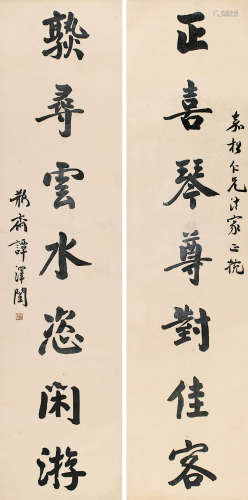 嘉樹仁兄法家正捥
正喜琴尊對佳客
孰尋雲水恣閑游
瓶齋譚澤闓